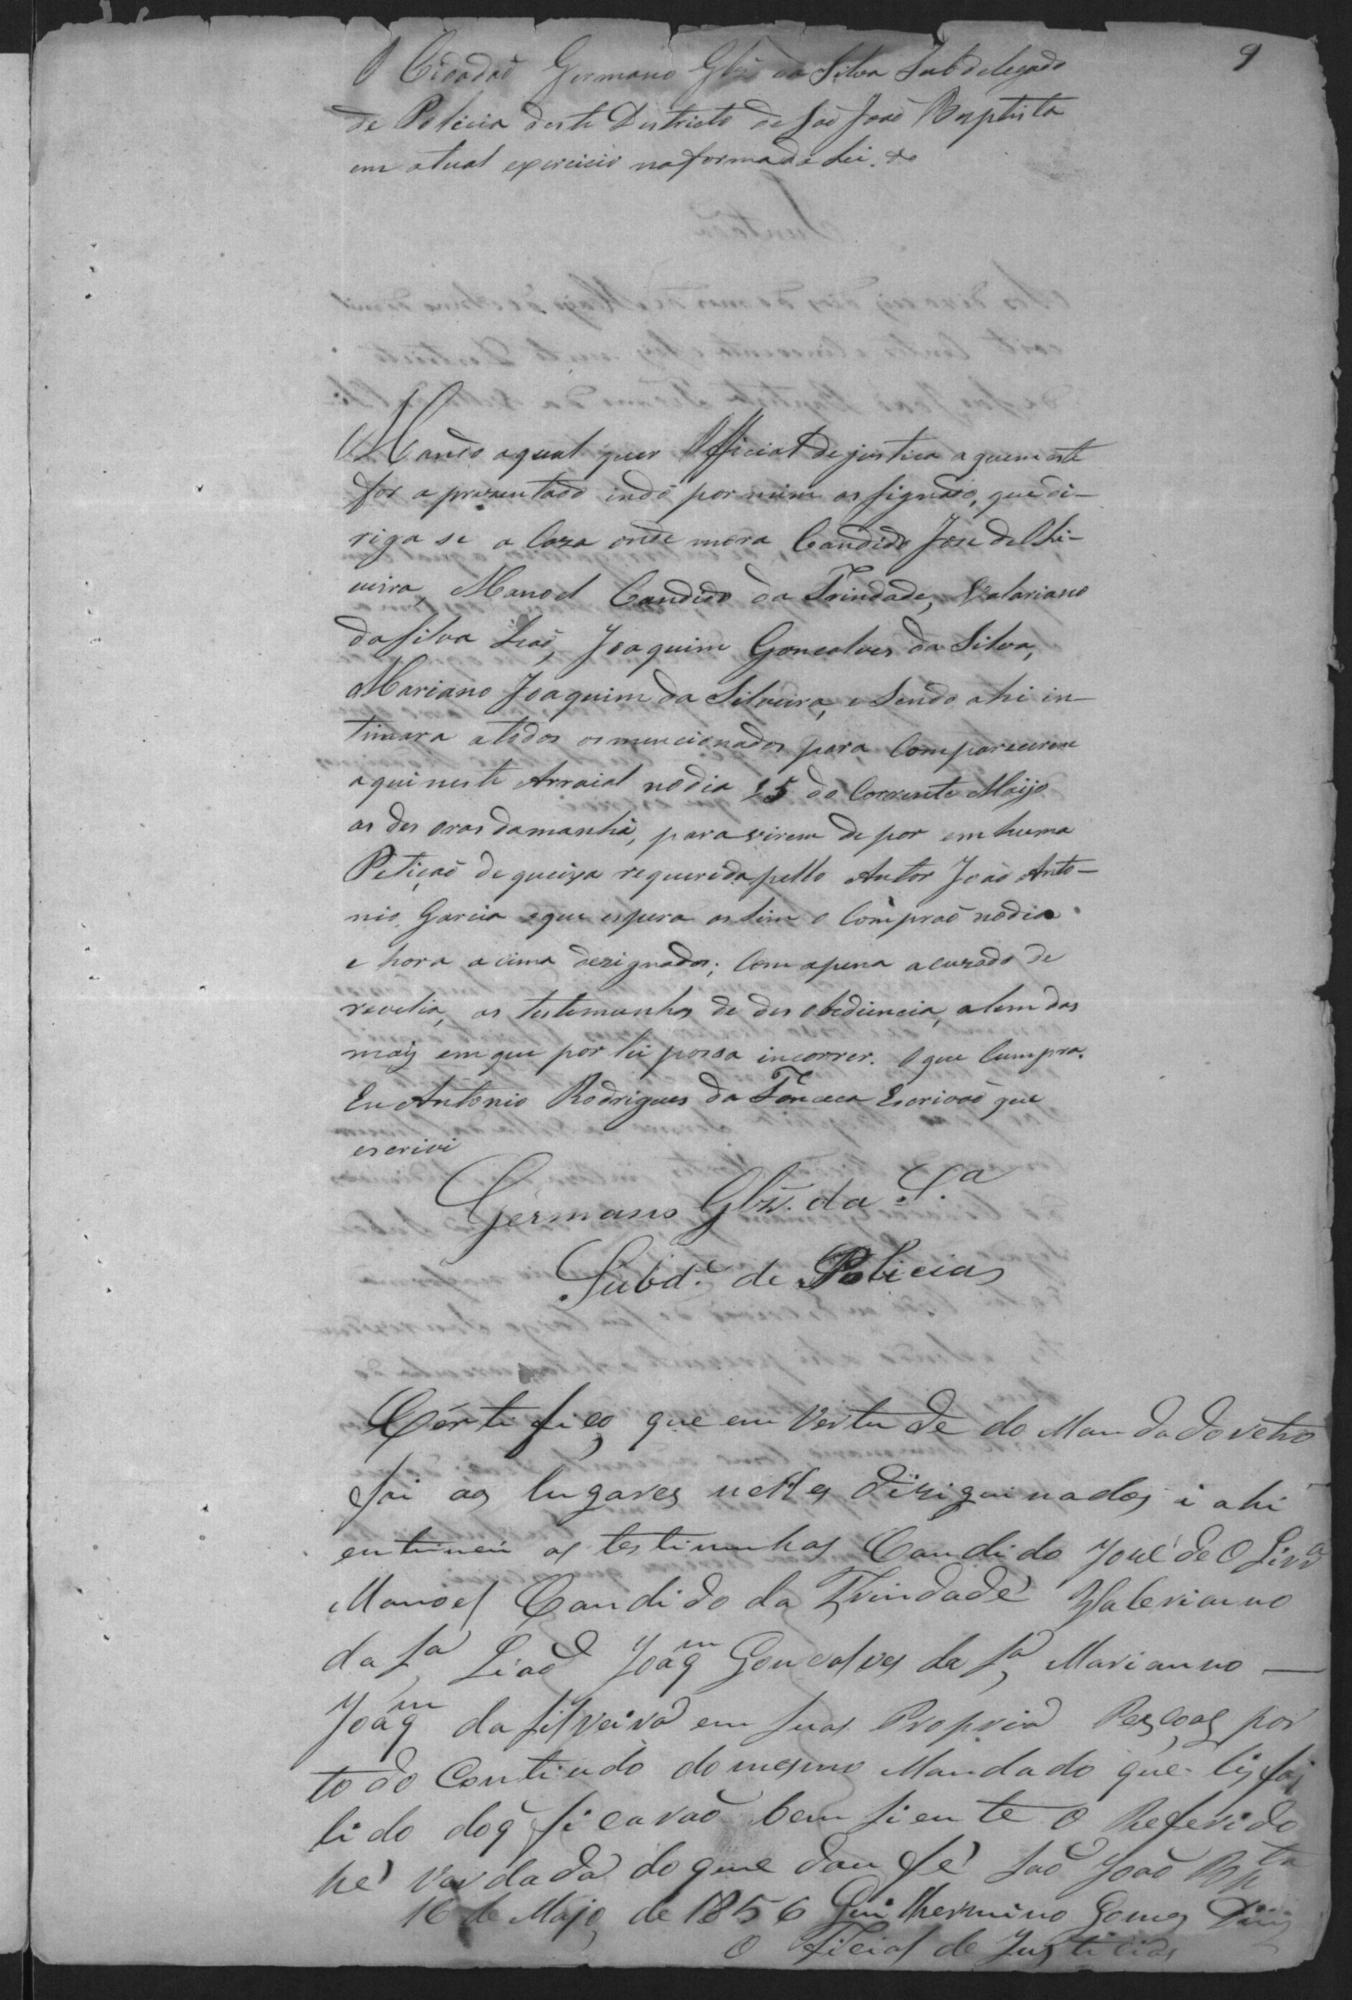 9
O Cidadaõ Germano Glz da Silva Subdelegado
de Policia deste Destricto de Saõ Joaõ Baptista
em atual exercicio naformada Lei. &
Mando aqual quer Official dejustica aquem este
for aprezentado indo pormim assignado, que di-
rija se a Caza onde mora Candido Jose de Oli-
veira, Manoel Candido da Trindade, Valariano
da Silva Leaõ, Joaquim Goncalves da Silva,
Mariano Joaquim da Silveira, e Sendo ahi in-
timara atodos osmencionados para Comparecerem
aquineste Arraial nodia 25 do Corrente Maijo
as des oras damanhã, paravirem de por em huma
Petiçaõ de queixa requerida pello Autor Joaõ Anto-
nio Garcia eque espera assim o Compraõ nodia
e hora acima dezignados; Com apena acuzado de
revelia, as testemunhas de des obediencia, alem das
mais em que por lei possa incorrer. Oque Cumpra.
Eu Antonio Rodrigues da Fonceca Escrivaõ que
escrivi
Germano Glz. da S.ª
Subd.º de Policias
Certefico que em Vertude do Mandado
fui aos lugares nelles diziguinados i ahi
entimei as testimunhas Candido José de OLivrª
Manoel Candido da Trindade Valerianno
da Sª Liaõ Joaqm Goncalves da Sª Marianno —
Joaqm da Silveira em suas Propria Pesçoas por
todo Contiudo domesmo Mandado que lis foi
lido doq ficaraõ bem siente O Referido
hé Verdada doque dou fé Saõ Joaõ Bpta
16 de Majo de 1856 Guilhermino Gomes
O Ficial de Justicias